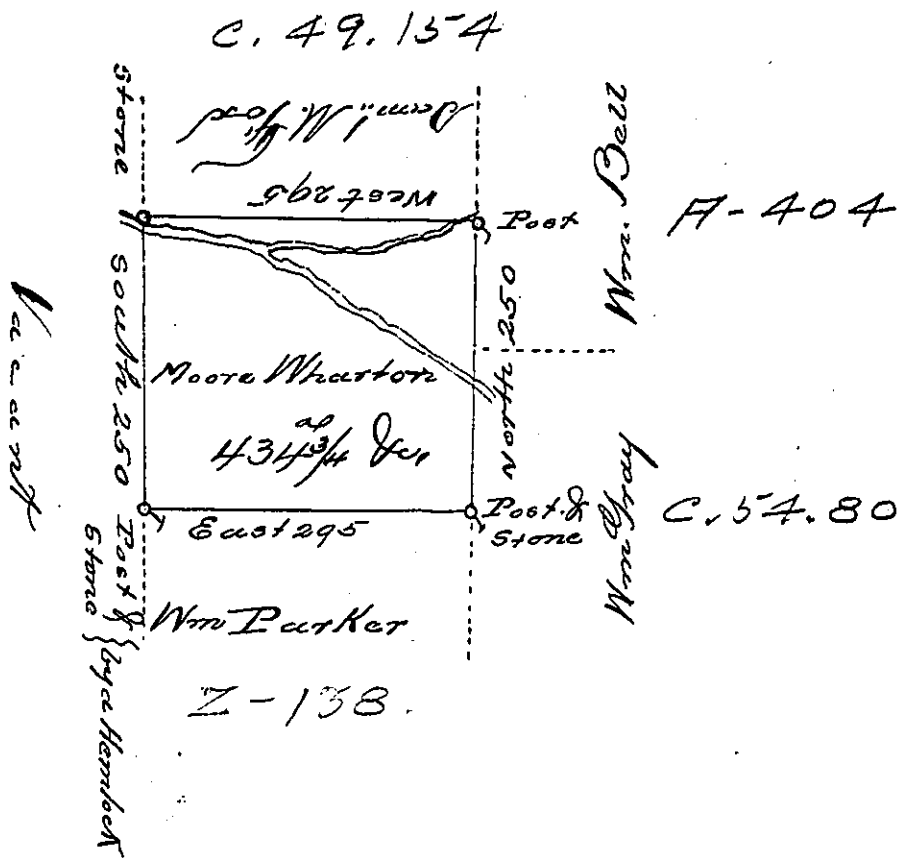 C. 49. 154
Stone
Sam'l. M. Fox
West 295
Post
Wm. Bell
A-404
Vacant
South 250
North 250
Moore Wharton
ap
434 3/4 &c,
Wm Gray
C. 54. 80
East 295
Post &
Stone
Post &
Stone } by a Hemlock
Wm Parker
Z-138.